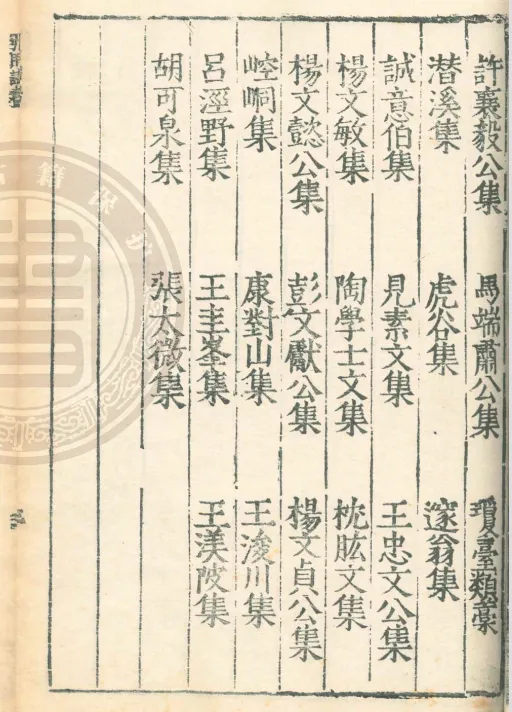 許襄毅公集 馬端肅公集 瓊臺類稾
潛溪集 虎谷集 邃翁集
誠意伯集 見素文集 王忠文公集
楊文敏集 陶學士文集 枕肱文集
楊文懿公集 彭文獻公集 楊文貞公集
崆峒集 康對山集 王浚川集
呂涇野集 王圭峯集 王渼陂集
胡可泉集 張太微集